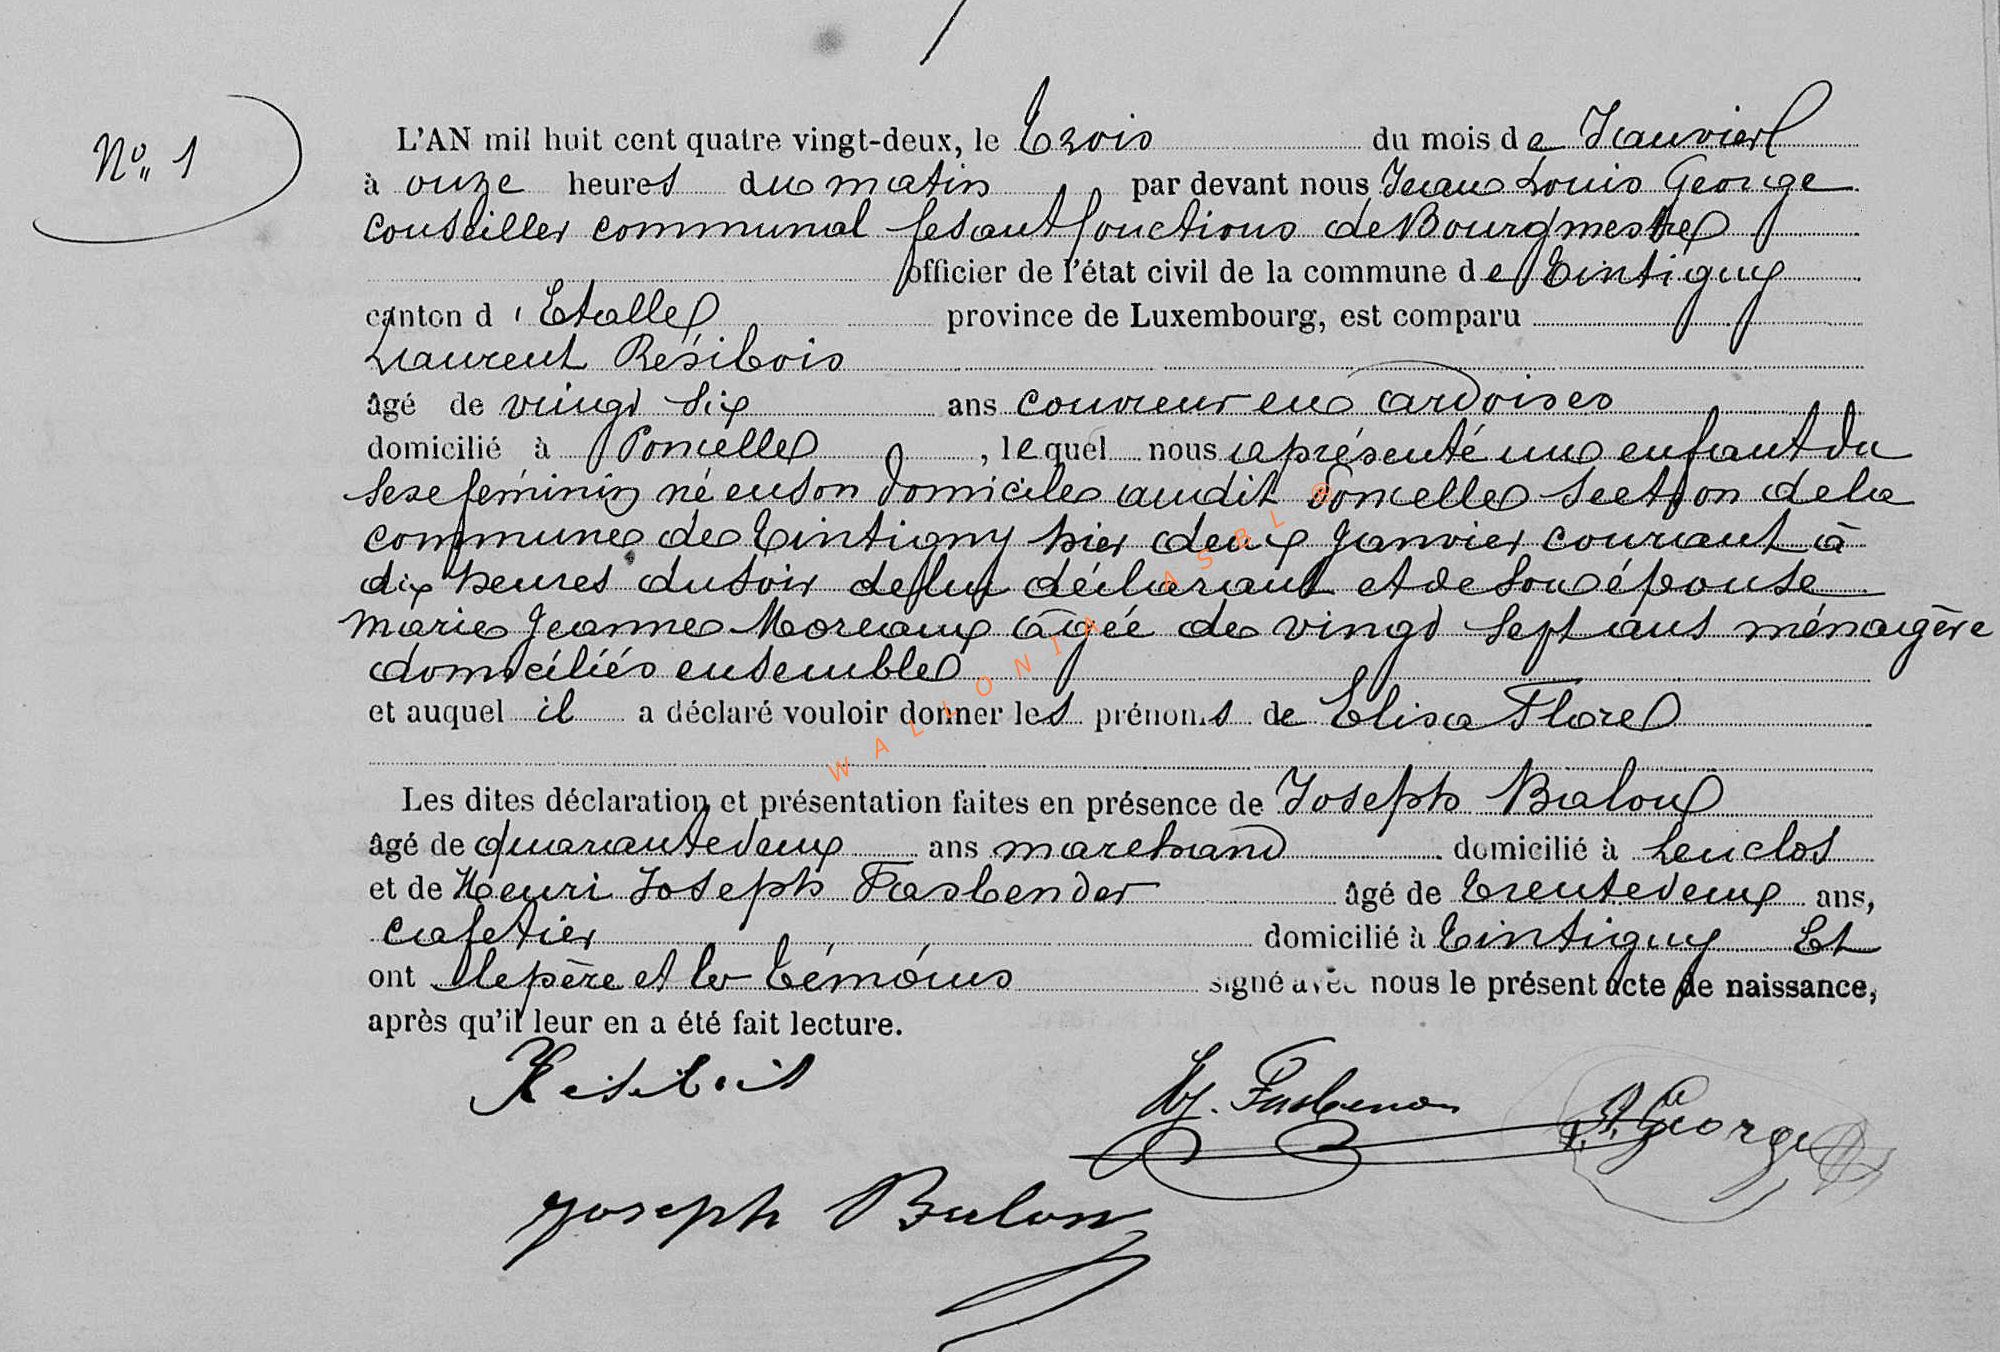 No 1
L'AN mil huit cent quatre vingt-deux, le Trois du mois de Janvier
à onze heures du matin par devant nous Jean Louis George
conseiller communal fesant fonctions de Bourgmestre
officier de l'état civil de la commune de Tintigny
canton d'Etalle province de Luxembourg, est comparu
Laurent Résibois
âgé de vingt six ans couvreur en ardoises
domicilié à Poncelle, lequel nous a présenté un enfant du
sexe féminin né en son domicile audit Poncelle section de la
commune de Tintigny hier deux Janvier courant à
dix heures du soir de lui déclarant et de son épouse
Marie Jeanne Moreaux âgée de vingt sept ans ménagère
domiciliés ensemble
et auquel il a déclaré vouloir donner les prénoms de Elisa Flore
Les dites déclaration et présentation faites en présence de Joseph Balon
âgé de quarante deux ans marchand domicilié à Lenclos
et de Henri Joseph Fasbender âgé de trente deux ans,
cafetier domicilié à Tintigny Et
ont le père et le témoins signé avec nous le présent acte de naissance,
après qu'il leur en a été fait lecture.
Resibois
Hj. Fasbender
J. L. George
Joseph Balon
WALLONIA ASBL ®